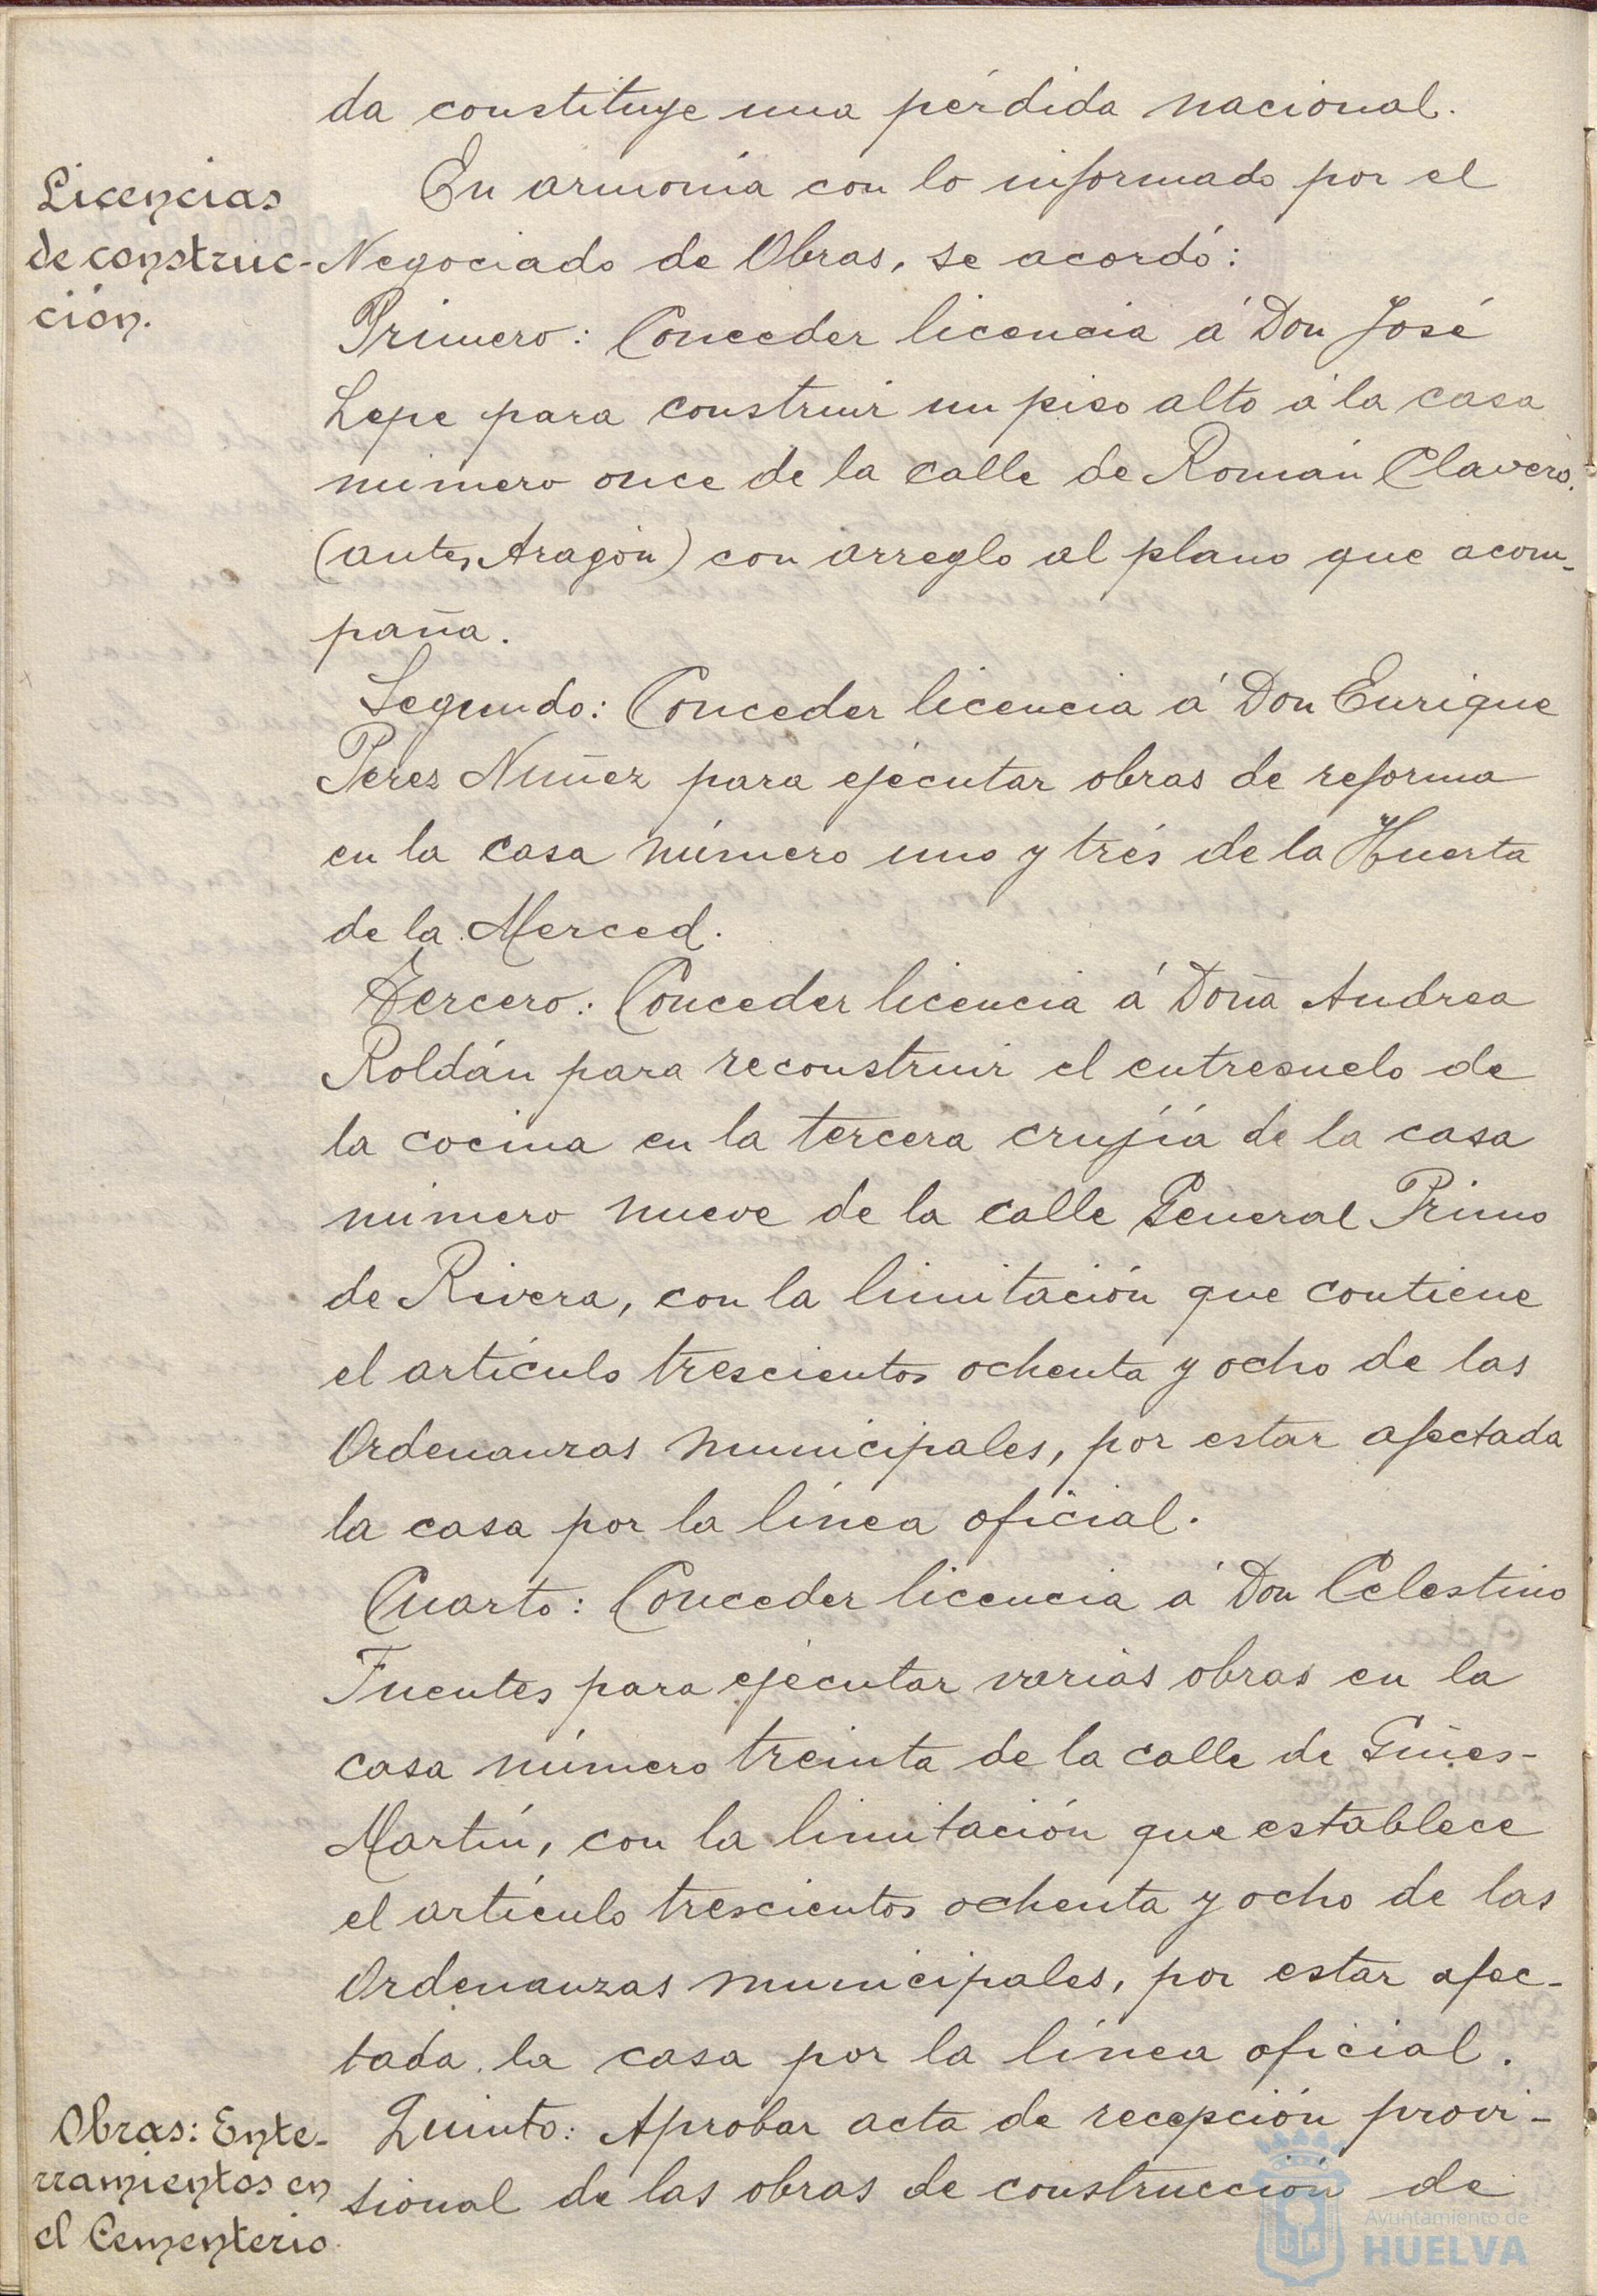 da constituye una pérdida nacional.
Licencias
de construc-
ción.
En armonía con lo informado por el
Negociado de Obras, se acordó:
Primero: Conceder licencia á Don José
Lepe para construir un piso alto á la casa
número once de la calle de Román Clavero.
(antes Aragón) con arreglo al plano que acom-
paña.
Segundo: Conceder licencia á Don Enrique
Perez Nuñez para ejecutar obras de reforma
en la casa número uno y trés de la Huerta
de la Merced.
Tercero: Conceder licencia á Doña Andrea
Roldán para reconstruir el entresuelo de
la cocina en la tercera crujía de la casa
número nueve de la calle General Primo
de Rivera, con la limitación que contiene
el artículo trescientos ochenta y ocho de las
Ordenanzas municipales, por estar afectada
la casa por la línea oficial.
Cuarto: Conceder licencia á Don Celestino
Fuentes para ejecutar varias obras en la
casa número treinta de la calle de Ginés-
Martín, con la limitación que establece
el artículo trescientos ochenta y ocho de las
Ordenanzas municipales, por estar afec-
tada la casa por la línea oficial.
Obras: Ente-
rramientos en
el Cementerio.
Quinto: Aprobar acta de recepción provi-
sional de las obras de construcción de
Ayuntamiento de
HUELVA